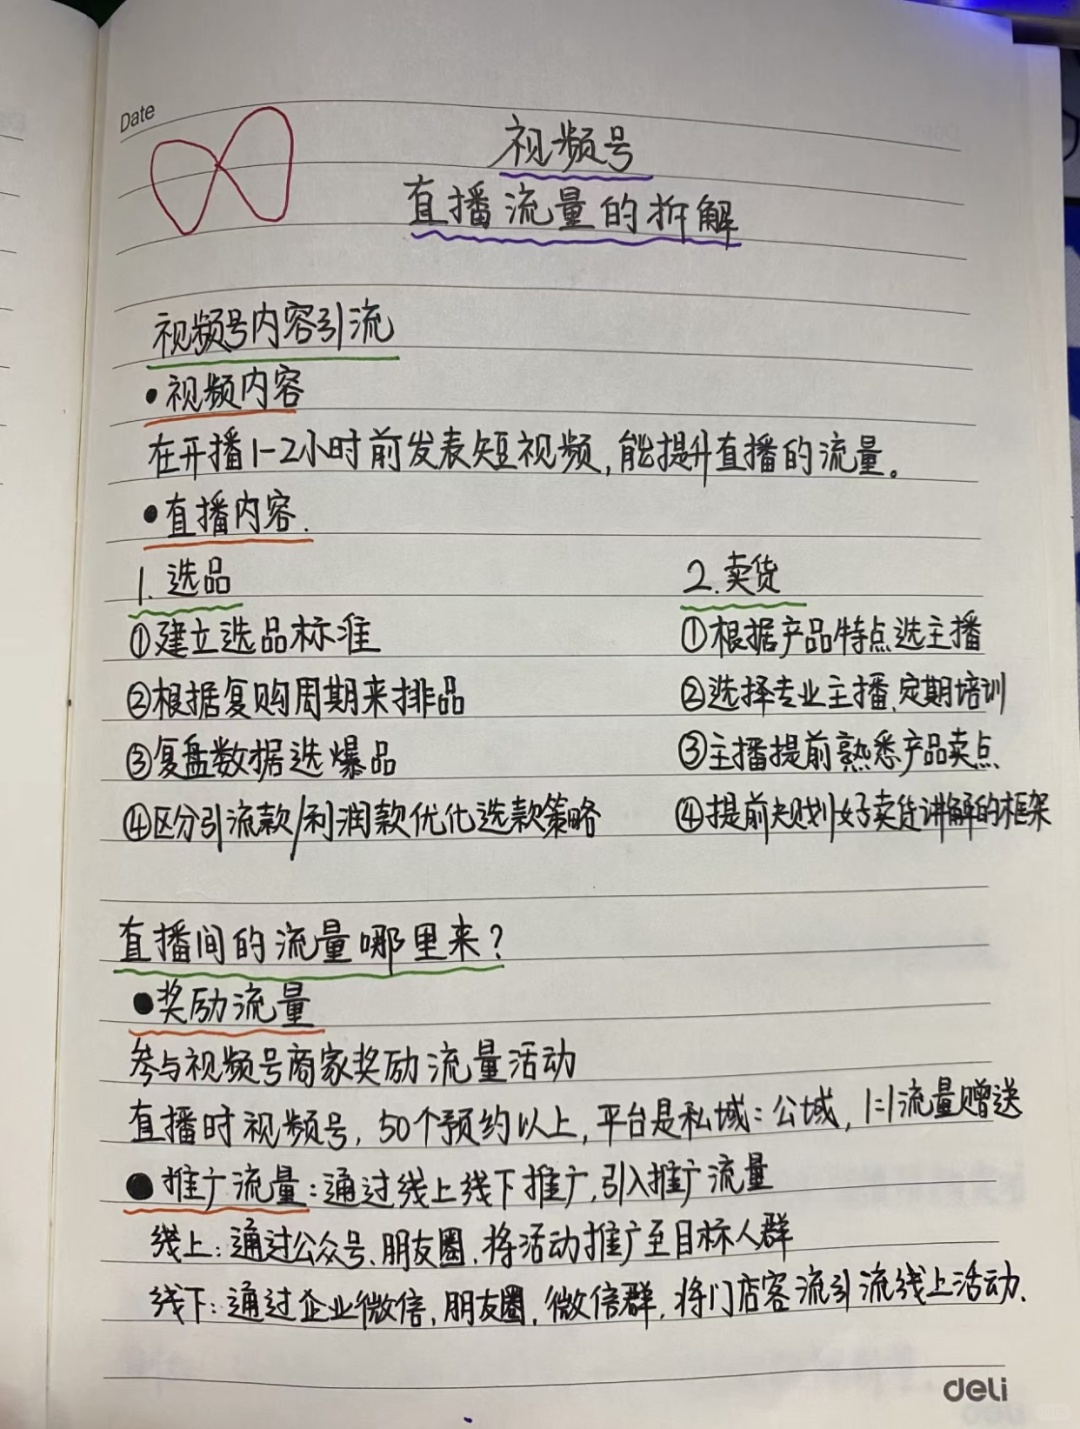 Date
视频号
直播流量的拆解
视频号内容引流
•视频内容
在开播1-2小时前发表短视频,能提升直播的流量。
•直播内容.
1.选品
①建立选品标准
②根据复购周期来排品
③复盘数据选爆品
④区分引流款/利润款优化选款策略
2.卖货
①根据产品特点选主播
②选择专业主播,定期培训
③主播提前熟悉产品卖点
④提前规划好卖货讲解的框架
直播间的流量哪里来?
•奖励流量
参与视频号商家奖励流量活动
直播时视频号,50个预约以上,平台是私域:公域,1:1流量赠送
•推广流量:通过线上线下推广,引入推广流量
线上:通过公众号、朋友圈,将活动推广至目标人群
线下:通过企业微信,朋友圈,微信群,将门店客流引流线上活动.
deli